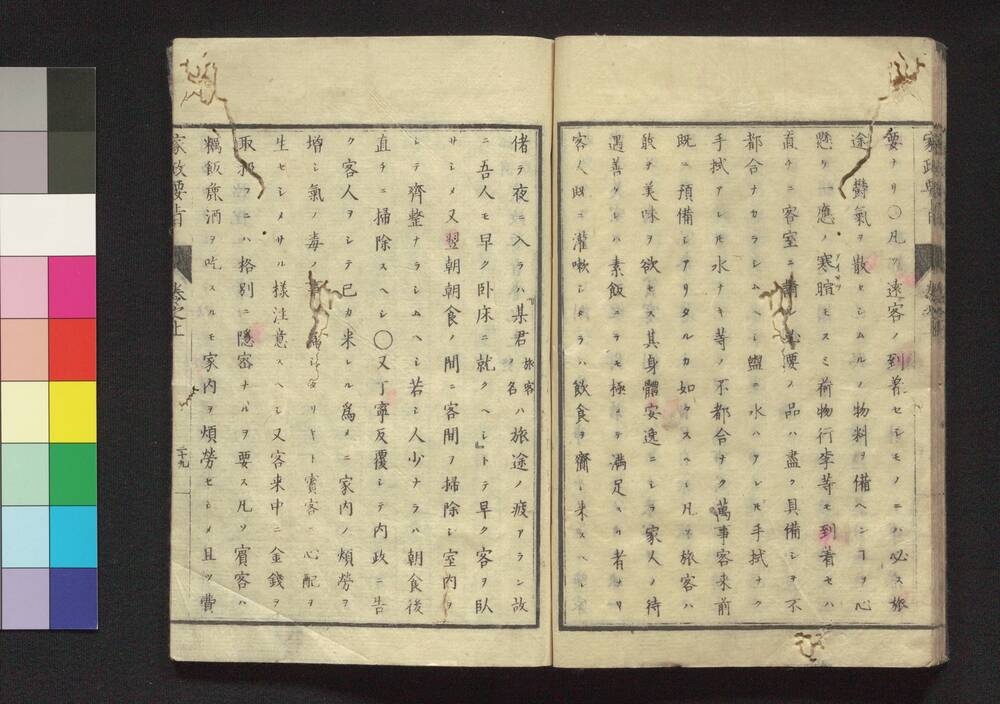 要ナリ〇凡ソ遠客ノ到着セシモノニハ必ス旅
途ノ欝氣ヲ散セシムルノ物料ヲ備ヘンヿヲ心
懸リ一應ノ寒暄モスミ荷物行李等モ到着セハ
直チニ客室ニ請シ必要ノ品ハ盡ク具備シヲ不
都合ナカラシムヘシ盥ニ水ハアレ𪜈手拭ナク
手拭アレ𪜈水ナキ等ノ不都合ナク萬事客来前
既ニ預備シアリタルカ如クスヘシ凡ソ旅客ハ
敢テ美味ヲ欲セス其身體安逸ニシテ家人ノ待
遇善ケレハ素飯ニテモ極メテ満足スル者ナリ
客人既ニ灌嗽シタラハ飲食ヲ齎シ来スヘシ
偖テ夜ニ入ラハ某君旅客ノ名ハ旅途ノ疲アラン故
ニ吾人モ早ク卧床ニ就クヘシ』トテ早ク客ヲ臥
サシメ又翌朝朝食ノ間ニ客間ヲ掃除シ室内ヲ
シテ齊整ナラシムヘシ若シ人少ナラハ朝食後
直チニ掃除スヘシ〇又丁寧反覆シテ内政ニ告
ク客人ヲシテ已カ来レル為メニ家内ノ煩勞ヲ
増シ氣ノ毒ノ リトト賓客 心配ヲ
生セシメサル様注意スヘシ又客来中ニ金錢ヲ
取扱フニハ格別ニ隠密ナルヲ要ス凡ソ賓客ハ
糲飯麁酒ヲ吃スルモ家内ヲ煩勞セシメ且ツ費
家政要旨 巻之上 二十九